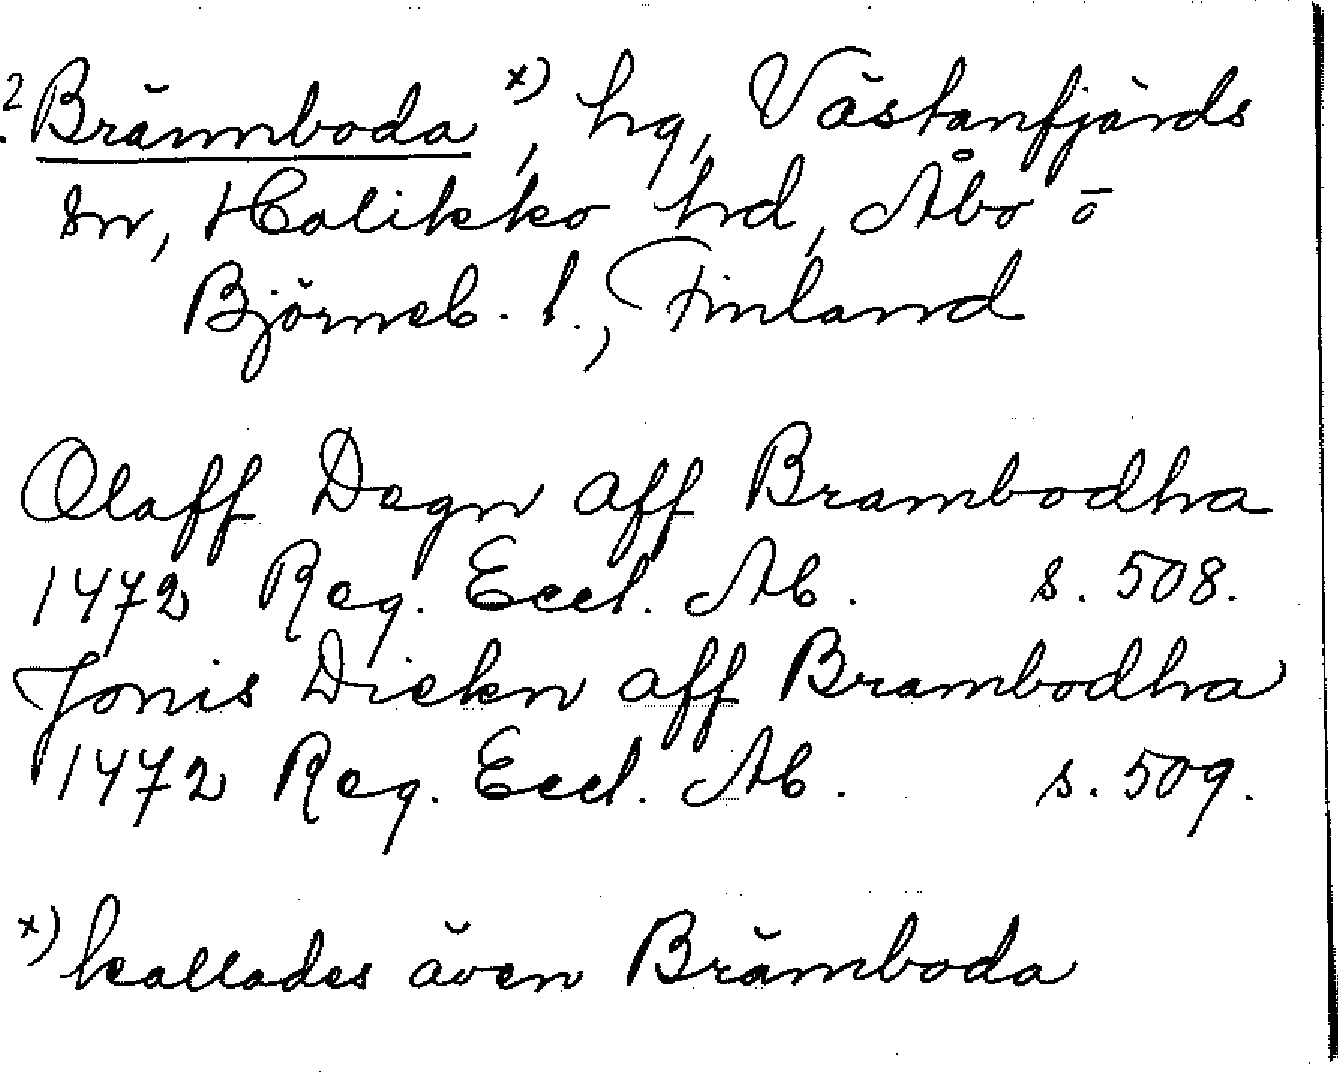 ? Brännboda x), hg, Västanfjärds
sn, Halikko hd, Åbo o
Björneb. l., Finland
Olaff Degn aff Brambodha
1472 Reg. Eccl. Ab. s. 508.
Jonis Diekn aff Brambodha
1472 Reg. Eccl. Ab. s. 509.
x) kallades även Brämboda